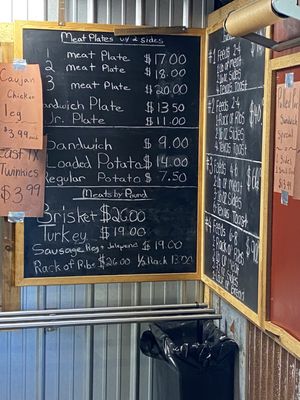 Cajun
Chicken
leg
$3.99
East TX
Twinkies
$3.99
Meat Plates w/ 2 sides
1 meat Plate $17.00
2 meat Plate $18.00
3 meat Plate $20.00
Sandwich Plate $13.50
Jr. Plate $11.00
Sandwich $9.00
Loaded Potato $14.00
Regular Potato $7.50
Meats by Pound
Brisket $26.00
Turkey $19.00
Sausage Reg + Jalapeno $19.00
Rack of Ribs $26.00 1/2 Rack 13.00
#1 Feeds 2-4
2 Sides
Texas Toast
#2 Feeds 2-4
Rack of Ribs
2 Sides
Texas Toast
#3 Feeds 4-6
of meat
Texas Toast
#4 Feeds 6-8
Rack of Ribs
Sandwich
Special